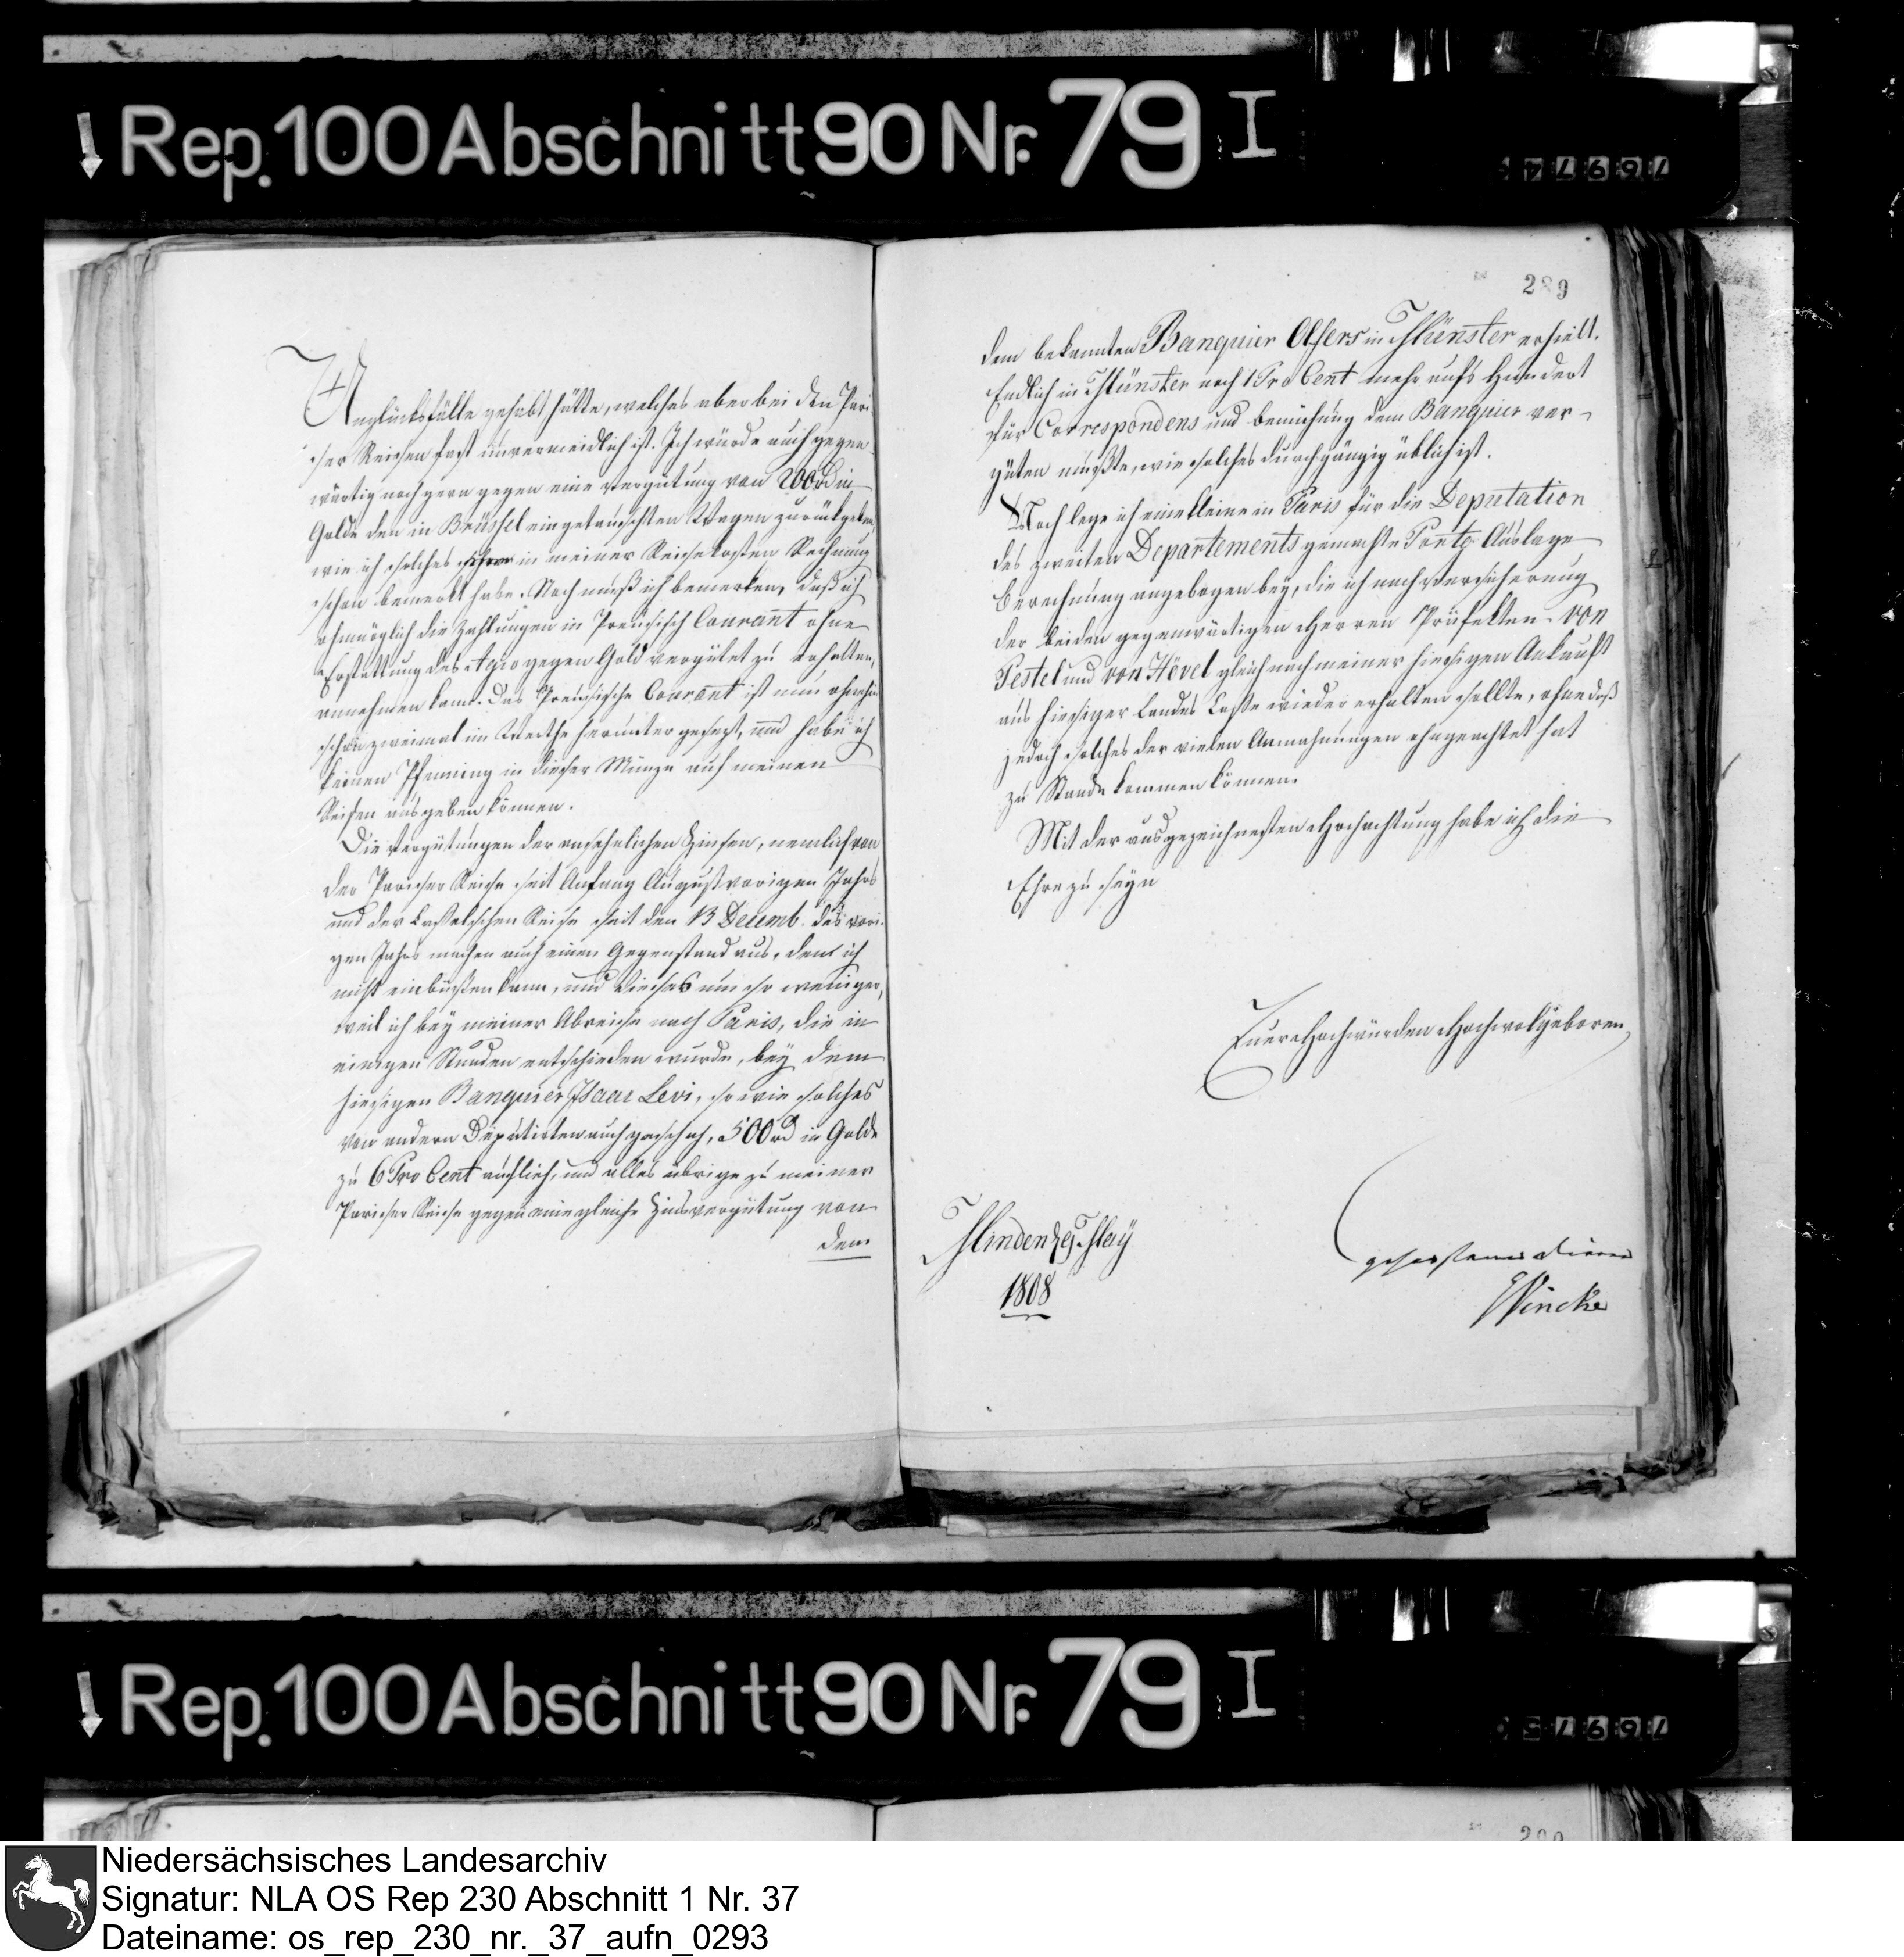 Rep. 100 Abschnitt 90 Nr. 79 I
76974
Unglücksfälle gehabt hätte, welches aber bei den Pari-
ser Reisen fast unvermeidlich ist. Ich würde auch gegen-
wärtig noch gern gegen eine Vergütung von 200 rd in
Golde den in Brüssel eingetauschten Wagen zurückgeben,
wie ich solches in meiner Reisekosten Rechnung
schon bemerkt habe. Noch muß ich bemerken, daß ich
ohnmöglich die Zahlungen in Preusisch Courant ohne
Erstattung des Agio gegen Gold vergütet zu erhalten,
annehmen kann. Das Preusische Courant ist nun ohnehin
schon zweimal im Werthe herunter gesezt, und habe ich
keinen Pfenning in dieser Münze auf meinen
Reisen ausgeben können.
Die Vergütungen der ansehnlichen Zinsen, nemlich von
der Pariser Reise seit Anfang August vorigen Jahrs
und der Casselschen Reise seit den 13 Decemb. des vori-
gen Jahrs machen auch einen Gegenstand aus, den ich
nicht einbüßen kann, und dieses um so weniger,
weil ich bey meiner Abreise nach Paris, die in
einigen Stunden entschieden wurde, bey dem
hiesigen Banquier Isaac Levi, so wie solches
von andern Deputirten auch geschah, 500 rd in Golde
zu 6 Pro Cent auflieh, und alles übrige zu meiner
Pariser Reise gegen eine gleiche Zinsvergütung von
dem
289
dem bekannten Banquier Olfers in Münster erhielt.
Endlich in Münster noch 1 Pro Cent mehr aufs Hundert
für Correspondens und Bemühung dem Banquier ver-
güten mußte, wie solches durchgängig üblich ist.
Noch lege ich eine kleine in Paris für die Deputation
des zweiten Departements gemachte Porto Auslage
Berechnung angebogen bey, die ich nach Versicherung
der beiden gegenwärtigen Herren Präfekten von
Pestel und von Hövel gleich nach meiner hiesigen Ankunft
aus hiesiger Landes Casse wieder erhalten sollte, ohne daß
jedoch solches der vielen Anmahnungen ohngeachtet hat
zu Stande kommen können.
Mit der ausgezeichnesten Hochachtung habe ich die
Ehre zu seyn
Euer Hochwürden Hochwolgeboren
gehorsamer Diener
Vincke
Minden May
1808
Rep. 100 Abschnitt 90 Nr. 79 I
76975
Niedersächsisches Landesarchiv
Signatur: NLA OS Rep 230 Abschnitt 1 Nr. 37
Dateiname: os_rep_230_nr._37_aufn_0293